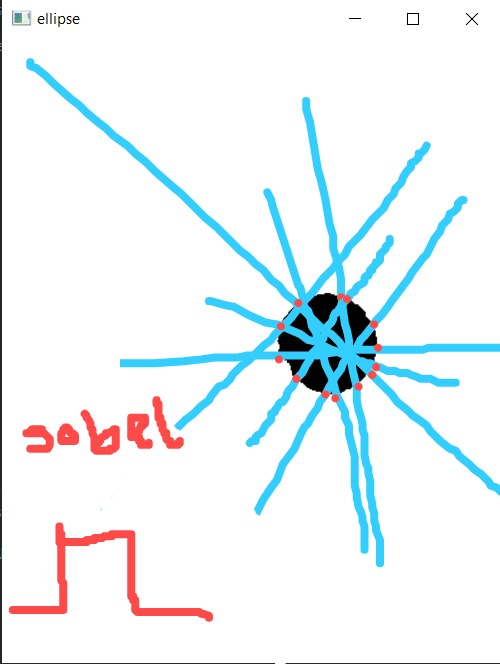 ellipse
sobel